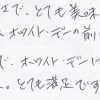 エで、とても美味
、ホワイト・デーの前に
で、ホワイト・デーに
。とても満足です